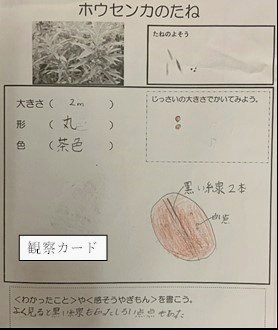 ホウセンカのたね
たねのよそう
大きさ ( 2m )
じっさいの大きさでかいてみよう。
形 ( 丸 )
色 ( 茶色 )
黒い線2本
白い点
観察カード
<わかったこと>や<感そうやぎもん>を書こう。
よく見ると黒い線もあったししろい点点もあった